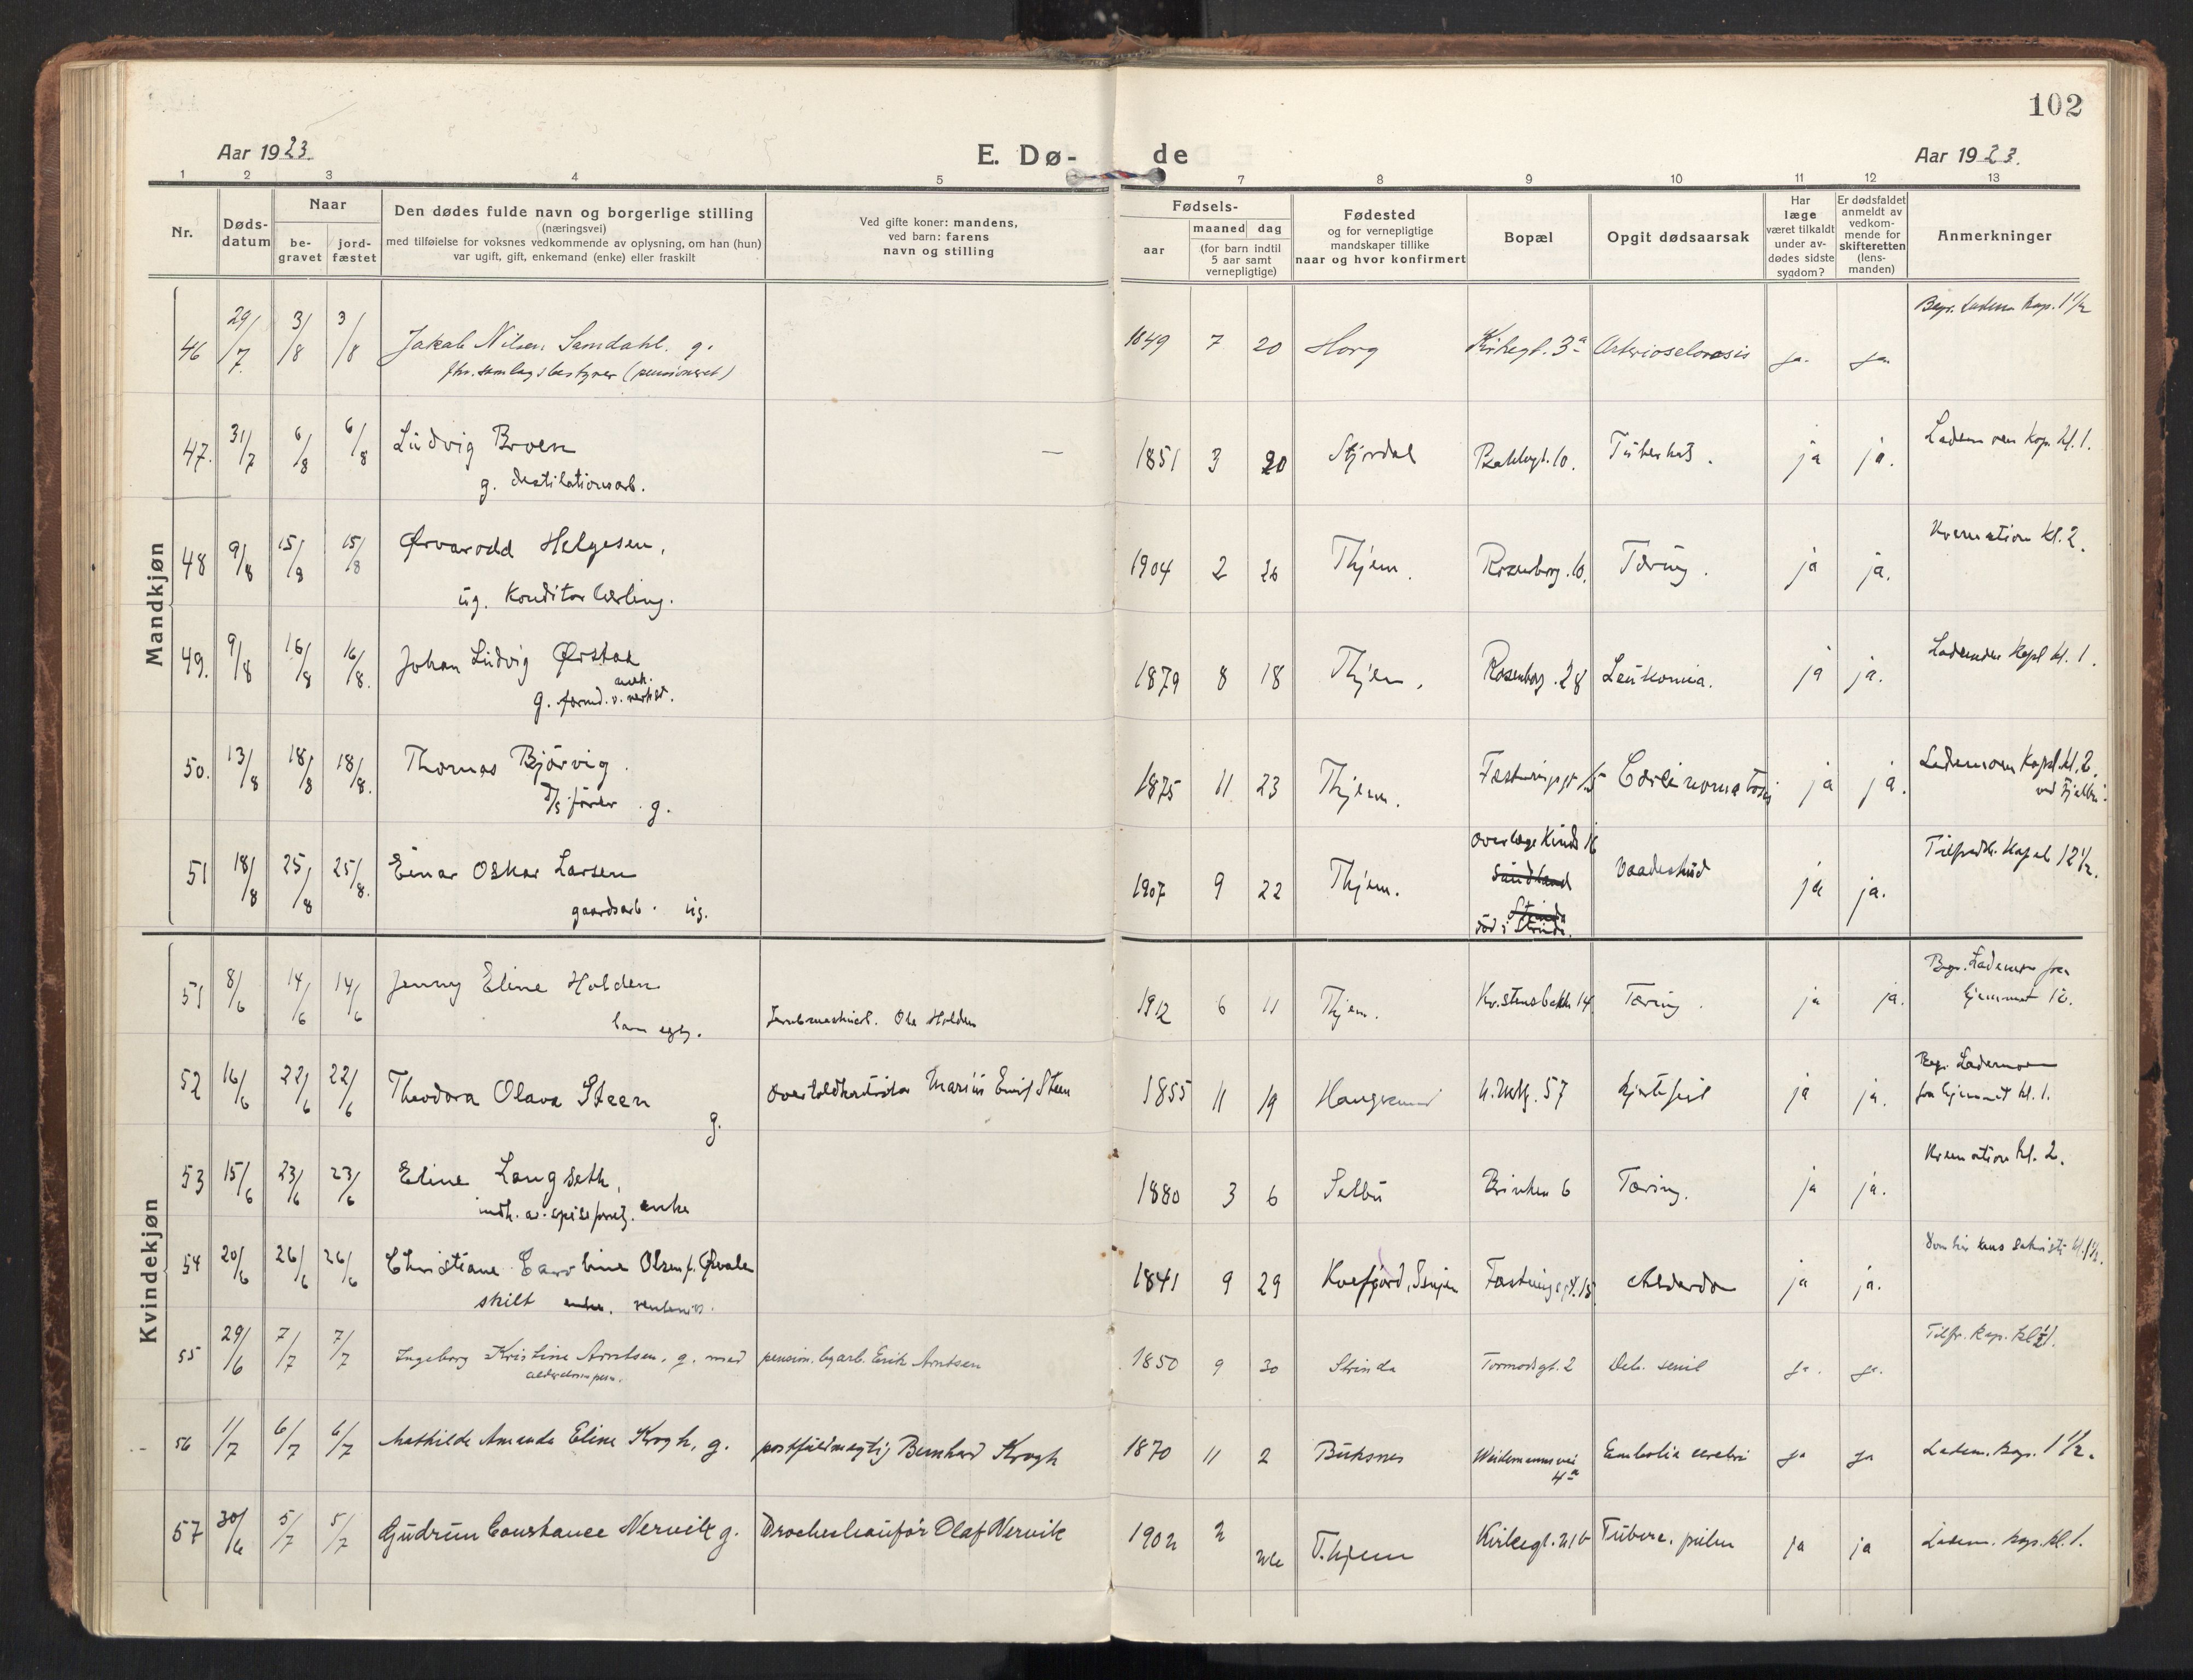 102
Aar 1923.
E. Dø-
de
Aar 1923.
1 2 3 4 5 7 8 9 10 11 12 13
Nr.
Døds-
datum
Naar
be-
gravet
jord-
fæstet
Den dødes fulde navn og borgerlige stilling
(næringsvei)
med tilføielse for voksnes vedkommende av oplysning, om han (hun)
var ugift, gift, enkemand (enke) eller fraskilt
Ved gifte koner: mandens,
ved barn: farens
navn og stilling
Fødsels-
aar
maaned dag
(for barn indtil
5 aar samt
vernepligtige)
Fødested
og for vernepligtige
mandskaper tillike
naar og hvor konfirmert
Bopæl
Opgit dødsaarsak
Har
læge
været tilkaldt
under av-
dødes sidste
sygdom?
Er dødsfaldet
anmeldt av
vedkom-
mende for
skifteretten
(lens-
manden)
Anmerkninger
Mandkjøn
Begr. Ladem. kap. 1 1/2
46 29/7 3/8 3/8 Jakob Nilsen Samdahl. g. 1849 7 20 Horg Kirkegt. 3a Arteriosclorosis ja. ja
fhv. samlagsbestyrer (pensioneret)
Lademoen kap. kl. 1.
47. 31/7 6/8 6/8 Ludvig Broen — 1851 3 20 Stjørdal Bakkegt. 10. Tuberkul. ja ja.
g. destilationsarb.
Kremation kl. 2.
48 9/8 15/8 15/8 Ørvarodd Helgesen, 1904 2 26 Thjem. Rosenborg. 10. Tæring. ja ja.
ug. Konditorlærling.
Lademoen kapl kl. 1.
49. 9/8 16/8 16/8. Johan Ludvig Ørstad 1879 8 18 Thjem. Rosenborg. 28 Leukomia. ja ja.
g. formd. v. verkst.
Lademoen kapel kl. 2.
50. 13/8 18/8 18/8. Thomas Bjørvig. 1875 11 23 Thjem. Fæstningsgt 15 Carcinomatosis ja ja.
D/S fører. g.
ved Fjelbu.
Overlæge Kinds 16
Tilfredsh. kapel 12 1/2.
51 18/8 25/8 25/8. Einar Oskar Larsen 1907 9 22 Thjem. Sundland Vaadeskud ja ja.
gaardsarb. ug.
Strinda
død i Strinda.
Kvindekjøn
Begr. Lademoen fra
hjemmet 12.
51 8/6 14/6 14/6 Jenny Eline Holden 1912 6 11 Thjem. Kv.stensbakk 14 Tæring. ja ja.
barn egt. Ole Holden
Begr. Lademoen
fra hjemmet kl. 1.
52 16/6 22/6 22/6 Theodora Olava Steen Overtoldkontrolør Marius Emil Steen 1855 11 19 Haugesund 57 hjertefeil ja ja.
g.
Kremation kl. 2.
53 15/6 23/6 23/6 Eline Langseth, 1880 3 6 Selbu Brinken 6 Tæring. ja ja.
indh. av spiseforretn. enke
54 20/6 26/6 26/6 Christiane Caroline Olsen f. Qvale 1841 9 29 Kvæfjord, Senjen Fæstningsgt. 15 Alderdom ja ja.
skilt enke.
Tilfr. kap. kl 1.
55 29/6 7/7 7/7 Ingeborg Kristine Arntsen, g. med pension. byarb. Erik Arntsen 1850 9 30 Strinda Tormodsgt. 2 Deb. senil ja. ja.
alderdomspens.
56 1/7 6/7 6/7 Mathilde Amanda Eline Krogh, g. postfuldmægtig Bernhard Krogh 1870 11 2 Buksnes Weidemannsvei 4a Embolia cerebri ja ja Ladem. kap. 1 1/2.
57 30/6 5/7 5/7 Gudrun Constance Nervik g. Droschechaufør Olaf Nervik 1902 2 26 T.hjem Kirkegt. 21b Tuberc. pulm ja ja Ladem. kap. kl. 1.